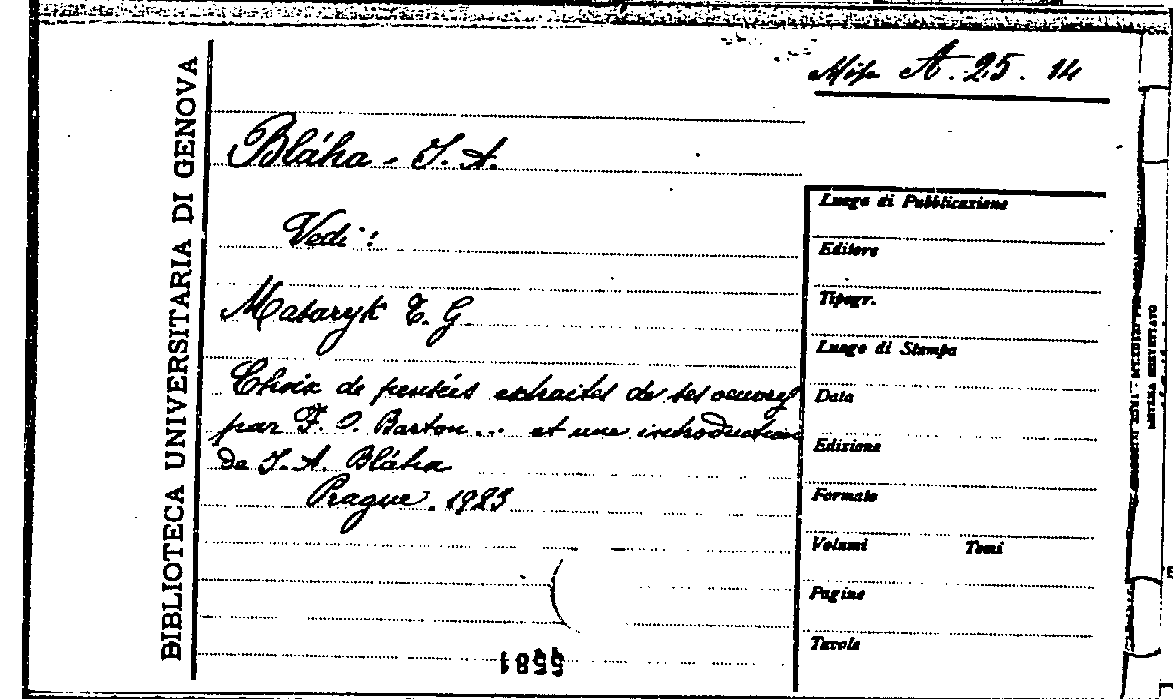 Misc A. 25. 14
BIBLIOTECA UNIVERSITARIA DI GENOVA
Bláha - I. A.
Vedi:
Masaryk T. G.
Choix de pensées extraites de ses oeuvres
par F. O. Barton... et une introduction
de I. A. Bláha
Prague. 1923
Luogo di Pubblicazione
Editore
Tipogr.
Luogo di Stampa
Data
Edizione
Formato
Volumi Tomi
Pagine
Tavole